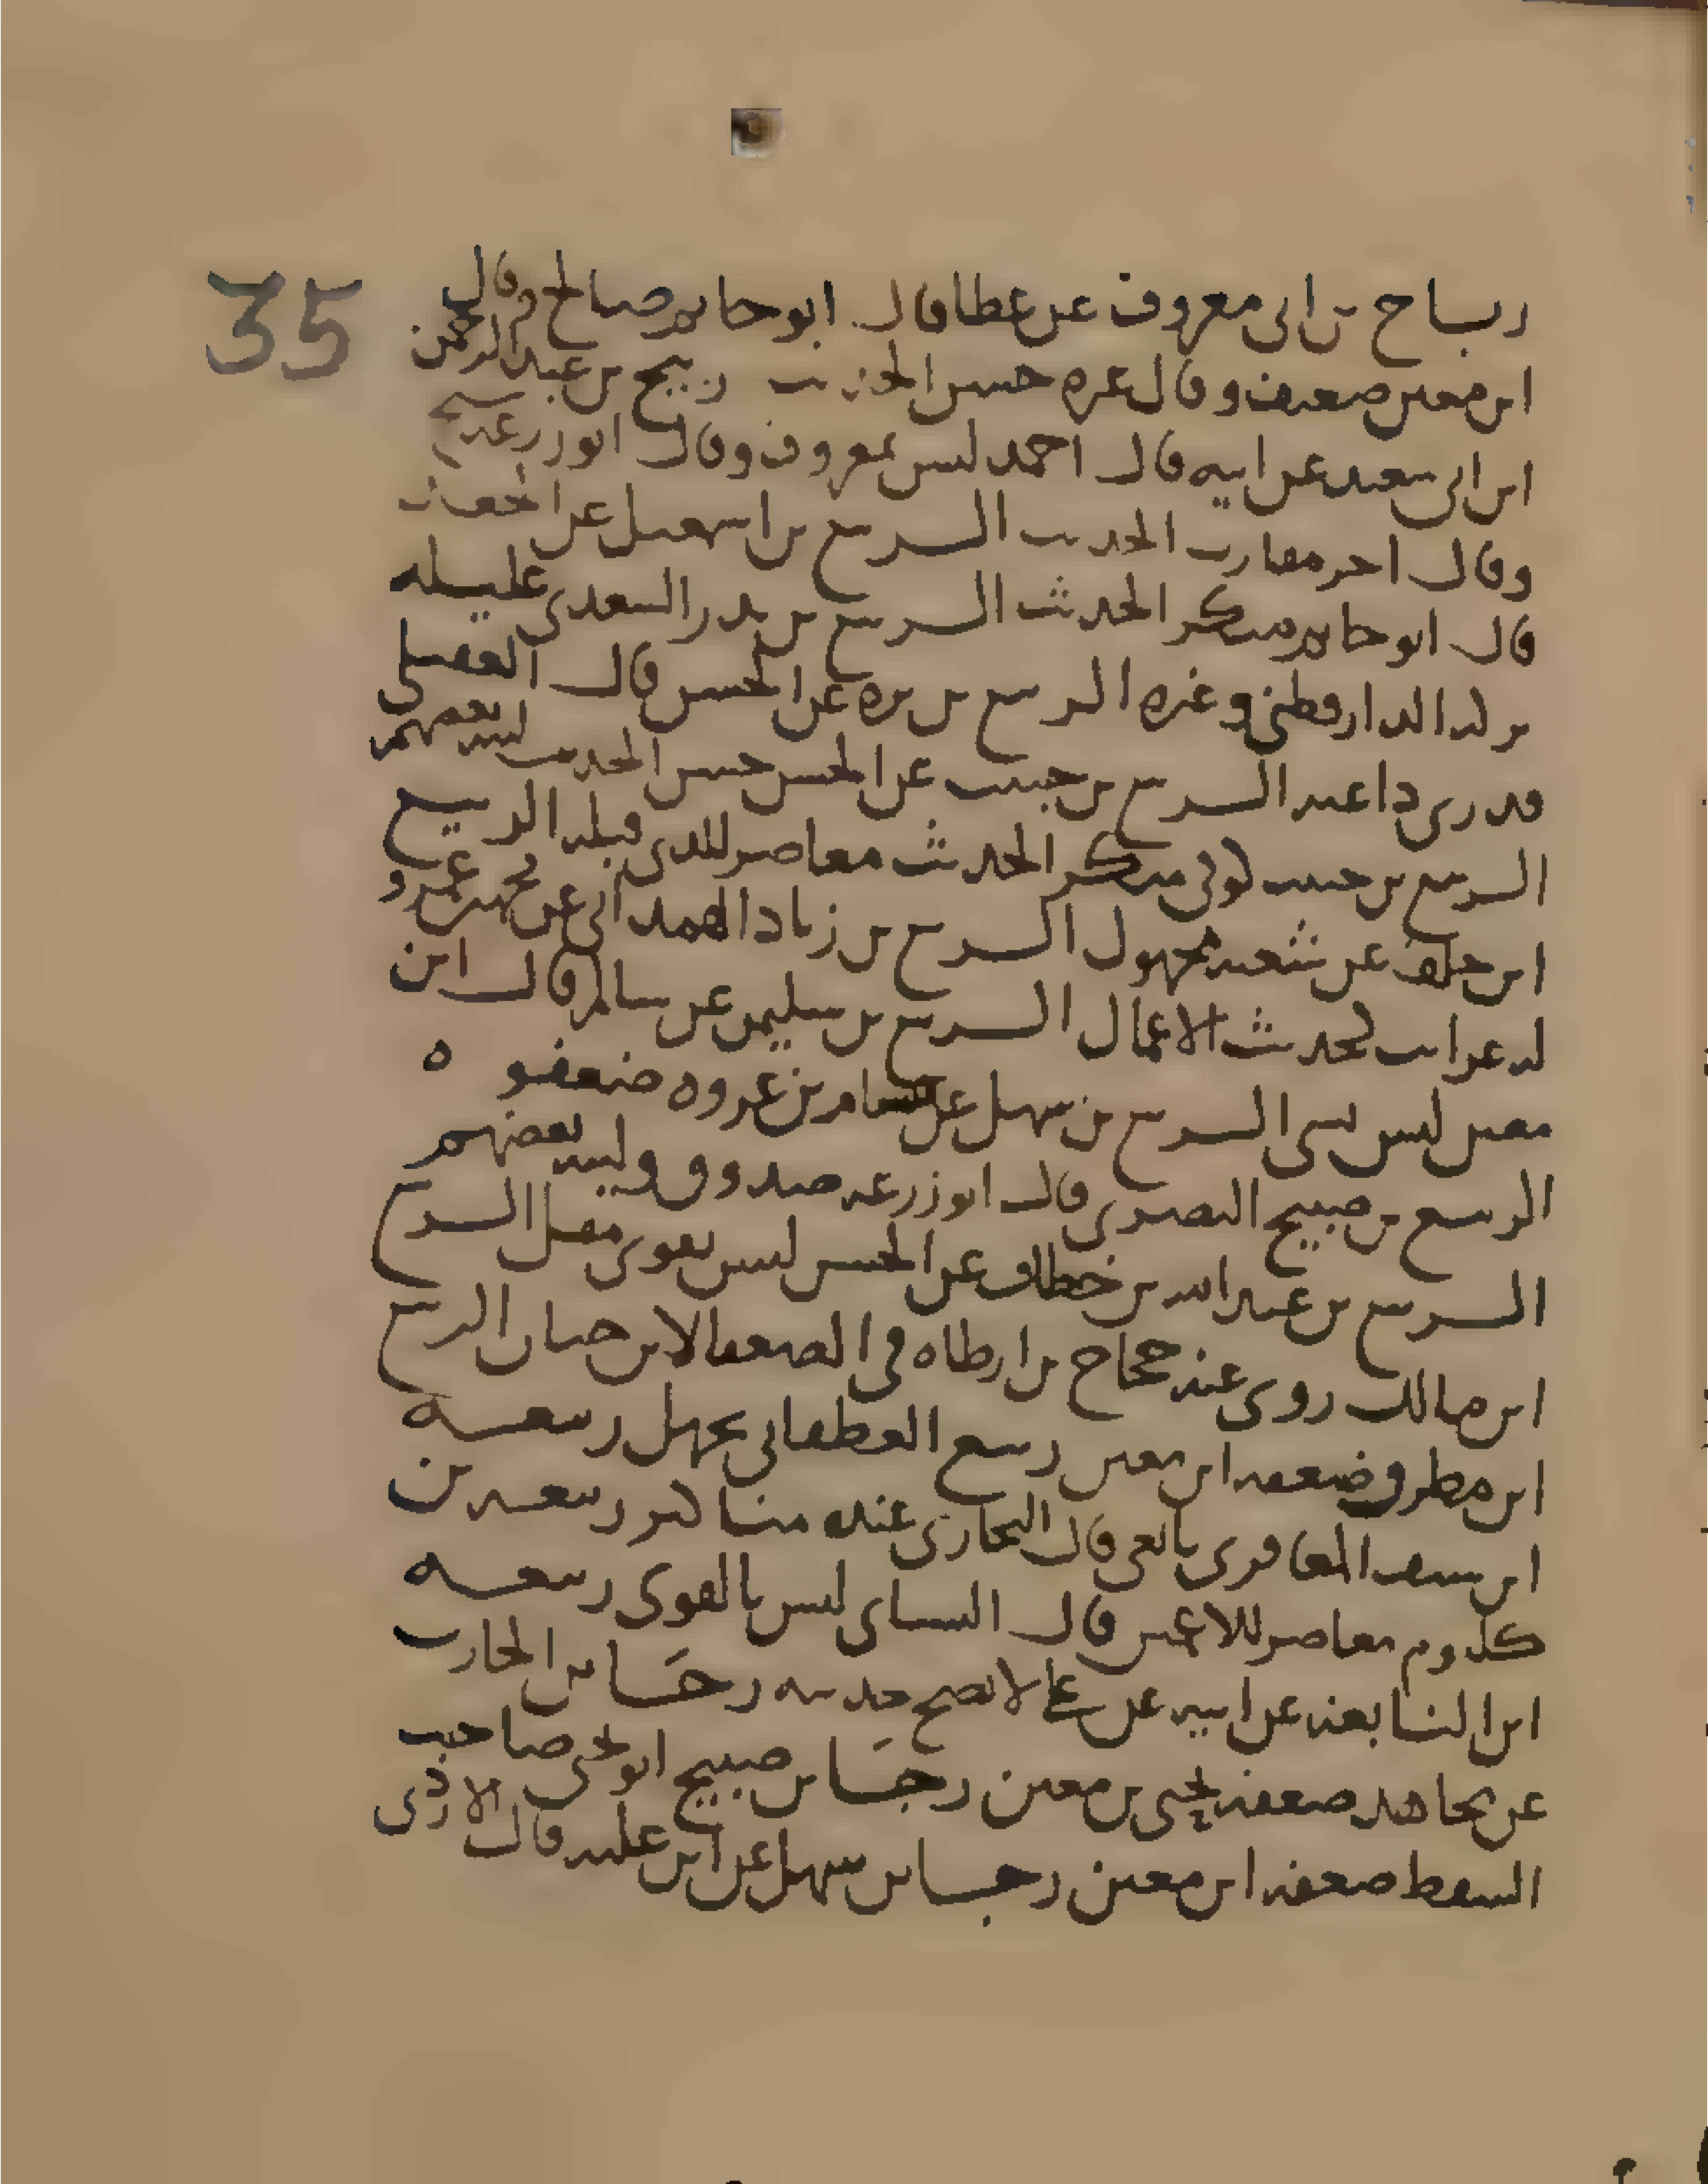 35
رباح بن ابى معروف عن عطا قال ابو حاتم صالح وقال
ابن معين ضعيف وقال غيره حسن الحديث ربيح بن عبد الرحمن
ابن ابى سعيد عن ابيه قال احمد ليس بمعروف وقال ابو زرعه شيخ
وقال اخر مقارب الحديث الربيع بن اسمعيل عن الجعدى
قال ابو حاتم منكر الحديث الربيع بن بدر السعدى عليله
تركه الدارقطنى وغيره الربيع بن بره عن الحسن قال العقيلى
قدرى داعيه الربيع بن حبيب عن الحسن حسن الحديث لينه بعضهم
الربيع بن حبيب كوفى منكر الحديث معاصر للذى قبله الربيع
ابن خلف عن شعبه مجهول الربيع بن زياد الهمدانى عن محمد بن عمرو
له غرايب لحديث الاعمال الربيع بن سليمن عن سالم قال ابن
معين ليس بشى الربيع بن سهل عن هشام بن عروه ضعفوه
الربيع بن صبيح البصرى قال ابو زرعه صدوق ولينه بعضهم
الربيع بن عبد الله بن خطاف عن الحسن ليس بقوى مقل الربيع
ابن مالك روى عنه حجاج بن ارطاه فى الضعفا لابن حبان الربيع
ابن مطرق ضعفه ابن معين ربيع الغطفانى يجهل ربيعه
ابن سيف المعافرى تابعى قال البخارى عنده مناكير ربيعه بن
كلدوم معاصر للاعمش قال النساى ليس بالقوى ربيعه
ابن النابغه عن ابيه عن على لا يصح حديثه رجا بن الحارث
عن مجاهد ضعفه يحيى بن معين رجا بن صبيح ابو يحيى صاحب
السقط ضعفه ابن معين رجا بن سهل عن ابن عليه قال الازدى